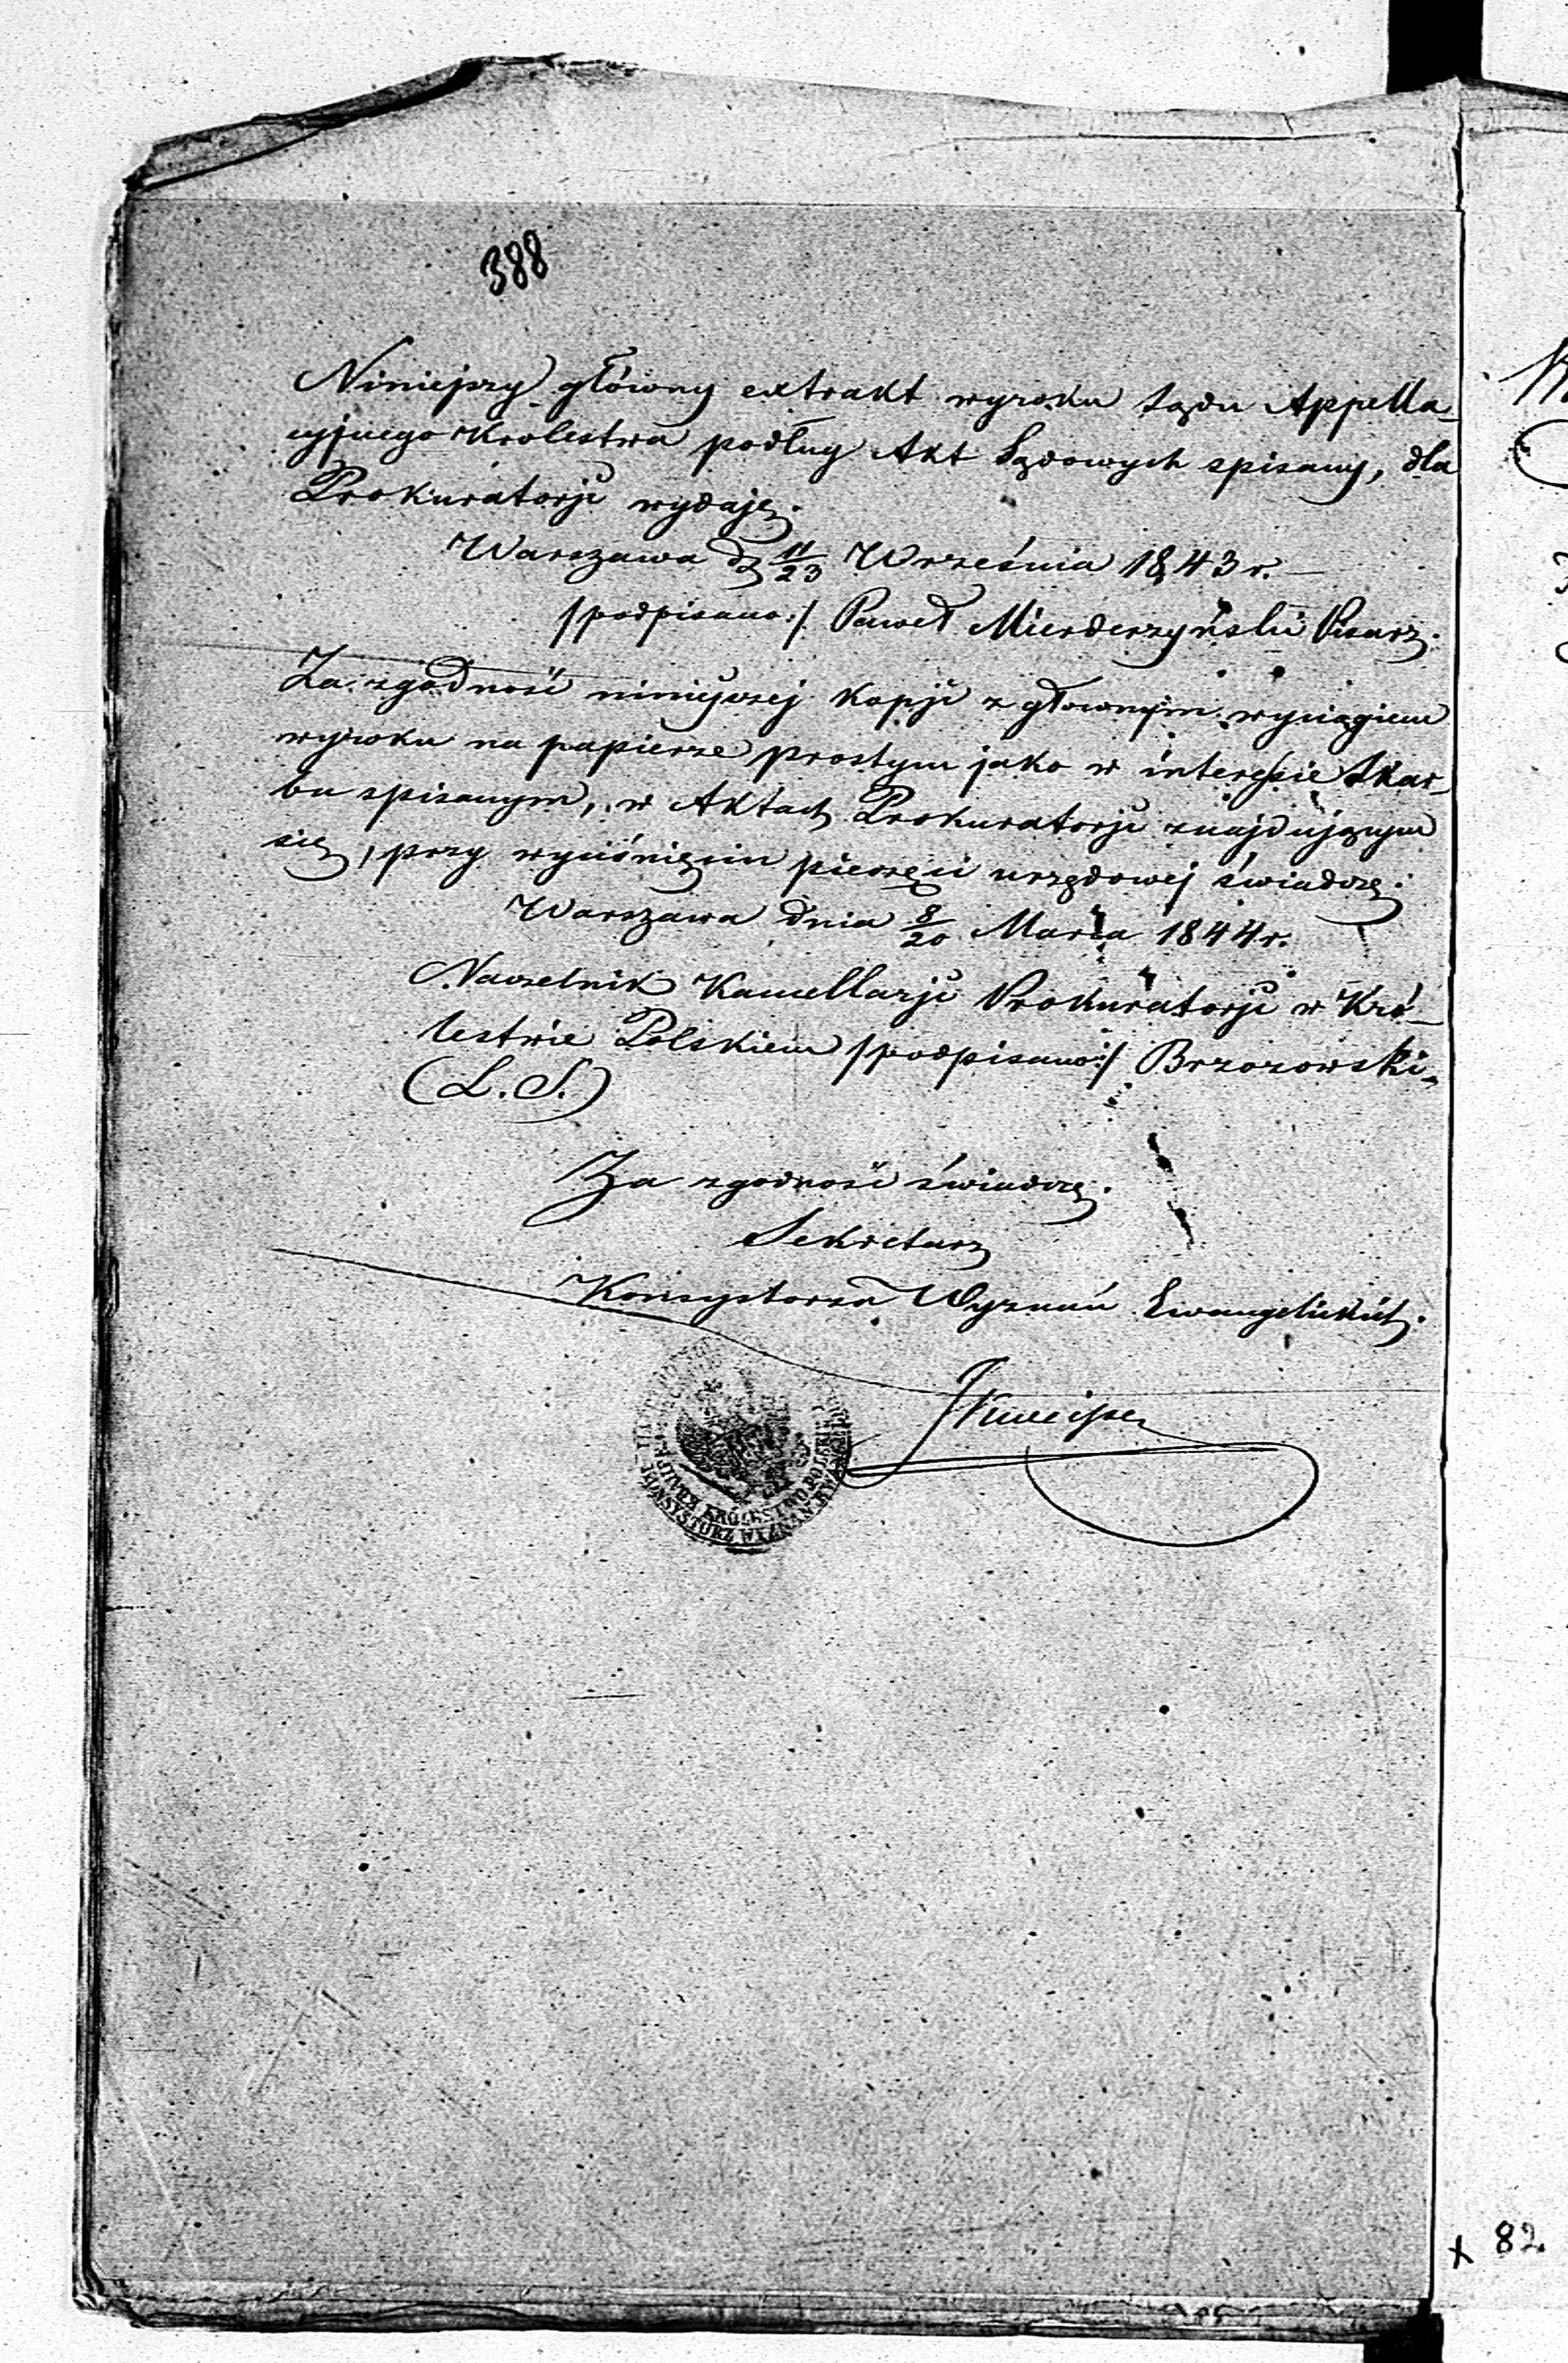 388
Niniejszy główny extrakt wyroku Sądu Appella-
cyjnego Krolestwa podług Akt Sądowych spisany, dla
Prokuratorji wydaję.
Warszawa d. 11/23 Września 1843 r.
/podpisano:/ Paweł Mierderzyński Pisarz.
Za zgodność niniejszej kopji z głownym wyciągiem
wyroku na papierze prostym jako w interesie Skar-
bu spisanym, w Aktach Prokuratorji znajdującym
się, przy wyciśnięciu pieczęci urzędowej świadczę.
Warszawa dnia 8/20 Marca 1844 r.
Naczelnik Kancellarji Prokuratorji w Kró-
lestwie Polskiem /podpisano:/ Brzozowski.
(L. S.)
Za zgodność świadczę.
Sekretarz
Konsystorza Wyznań Ewangelickich.
KRÓLESTWO POLSKIE
KONSYSTORZ WYZNAŃ EWA
82